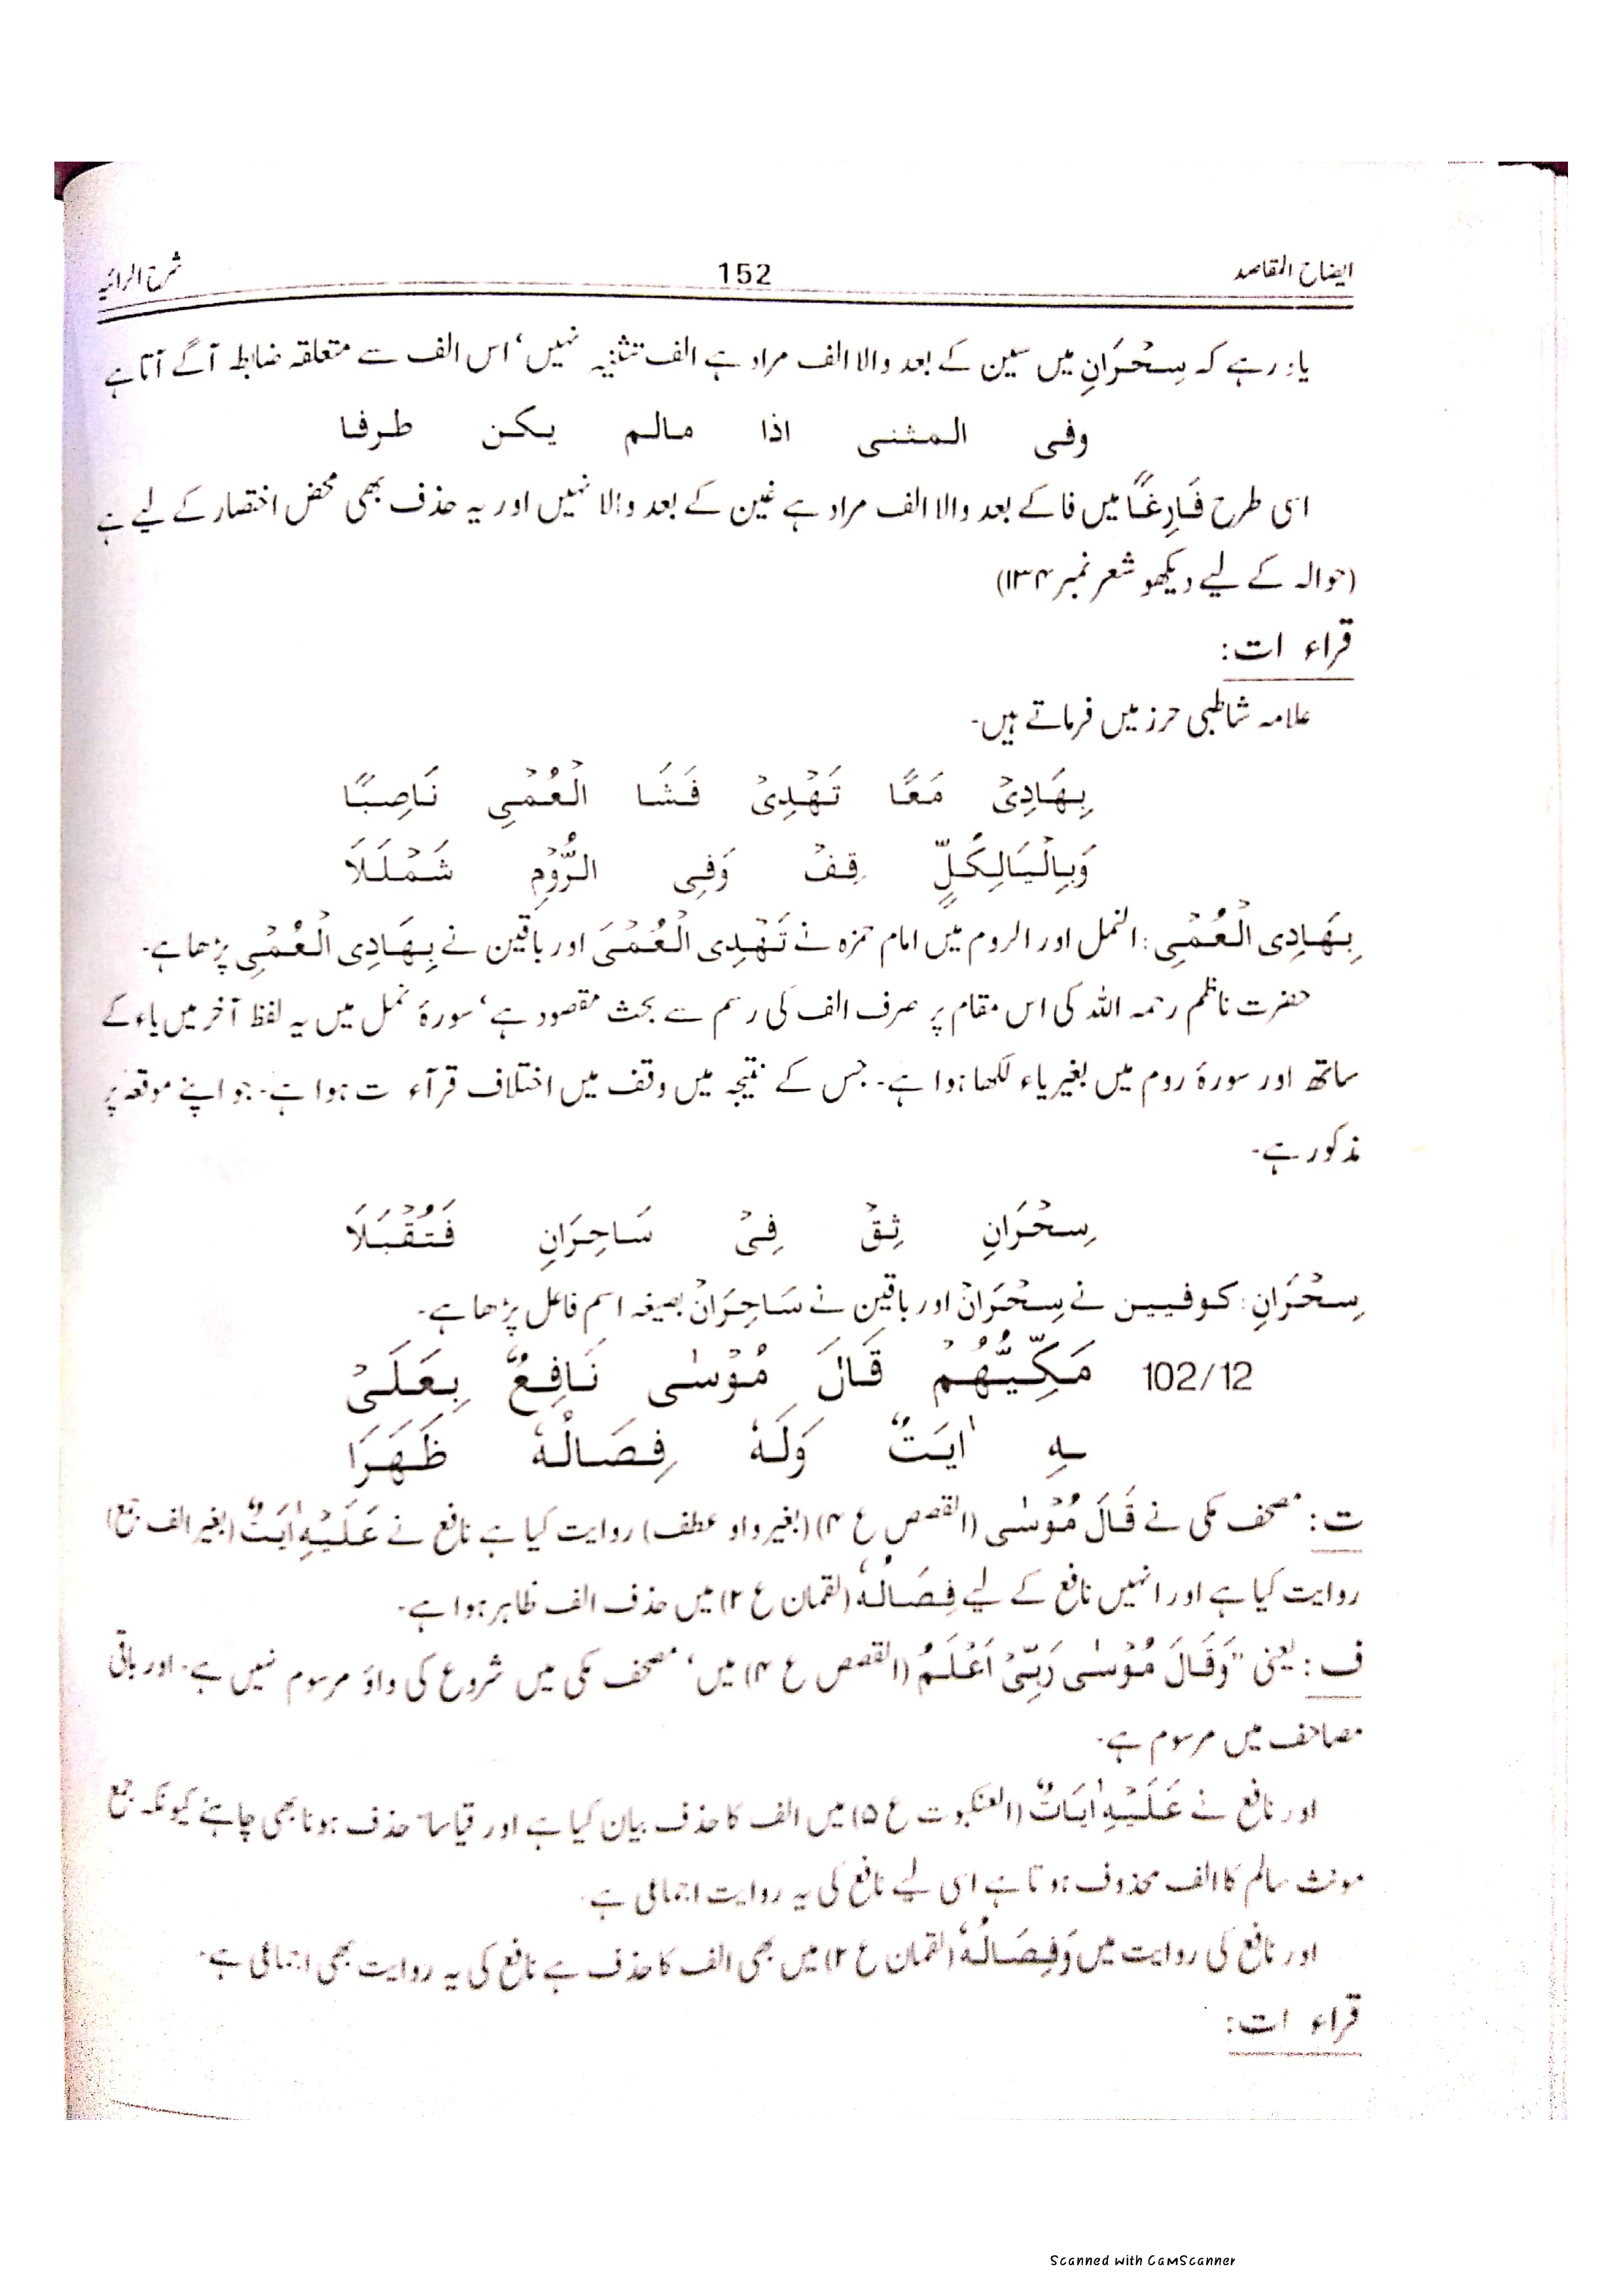 ایضاح المقاصد 152 شرح الرائیہ
یاد رہے کہ سِحْرَانِ میں سین کے بعد والا الف مراد ہے الف تثنیہ نہیں، اس الف سے متعلقہ ضابطہ آگے آتا ہے
وفی المثنی اذا مالم یکن طرفا
اسی طرح فَارِغًا میں فا کے بعد والا الف مراد ہے غین کے بعد والا نہیں اور یہ حذف بھی محض اختصار کے لیے ہے
(حوالہ کے لیے دیکھو شعر نمبر ۱۳۴)
قراء ات:
علامہ شاطبی حرز میں فرماتے ہیں۔
بِهَادِیْ مَعًا تَهْدِیْ فَشَا الْعُمْیِ نَاصِبًا
وَبِالْیَالِکُلٍّ قِفْ وَفِی الرُّوْمِ شَمْلَلَا
بِهَادِی الْعُمْیِ: النمل اور الروم میں امام حمزہ نے تَهْدِی الْعُمْیَ اور باقین نے بِهَادِی الْعُمْیِ پڑھا ہے۔
حضرت ناظم رحمہ اللہ کی اس مقام پر صرف الف کی رسم سے بحث مقصود ہے، سورۂ نمل میں یہ لفظ آخر میں یاء کے
ساتھ اور سورۂ روم میں بغیر یاء لکھا ہوا ہے۔ جس کے نتیجہ میں وقف میں اختلاف قرآء ت ہوا ہے۔ جو اپنے موقعہ پر
مذکور ہے۔
سِحْرَانِ ثِقْ فِیْ سَاحِرَانِ فَتُقْبَلَا
سِحْرَانِ: کوفیین نے سِحْرَانِ اور باقین نے سَاحِرَانِ بصیغہ اسم فاعل پڑھا ہے۔
102/12 مَکِّیُّهُمْ قَالَ مُوْسٰی نَافِعٌ بِعَلَیْ
ـهِ اٰیَتٌ وَلَهٗ فِصَالُهٗ ظَهَرَا
ت: مصحف مکی نے قَالَ مُوْسٰی (القصص ع ۴) (بغیر واو عطف) روایت کیا ہے نافع نے عَلَیْهِ اٰیَتٌ (بغیر الف جمع)
روایت کیا ہے اور انہیں نافع کے لیے فِصَالُهٗ (لقمان ع ۲) میں حذف الف ظاہر ہوا ہے۔
ف: یعنی "وَقَالَ مُوْسٰی رَبِّیْ اَعْلَمُ (القصص ع ۴) میں، مصحف مکی میں شروع کی واؤ مرسوم نہیں ہے۔ اور باقی
مصاحف میں مرسوم ہے۔
اور نافع نے عَلَیْهِ اٰیَاتٌ (العنکبوت ع ۵) میں الف کا حذف بیان کیا ہے اور قیاساً حذف ہونا بھی چاہئے کیونکہ جمع
مونث سالم کا الف محذوف ہوتا ہے اسی لیے نافع کی یہ روایت اجماعی ہے۔
اور نافع کی روایت میں وَفِصَالُهٗ (لقمان ع ۲) میں بھی الف کا حذف ہے نافع کی یہ روایت بھی اجماعی ہے۔
قراء ات:
Scanned with CamScanner